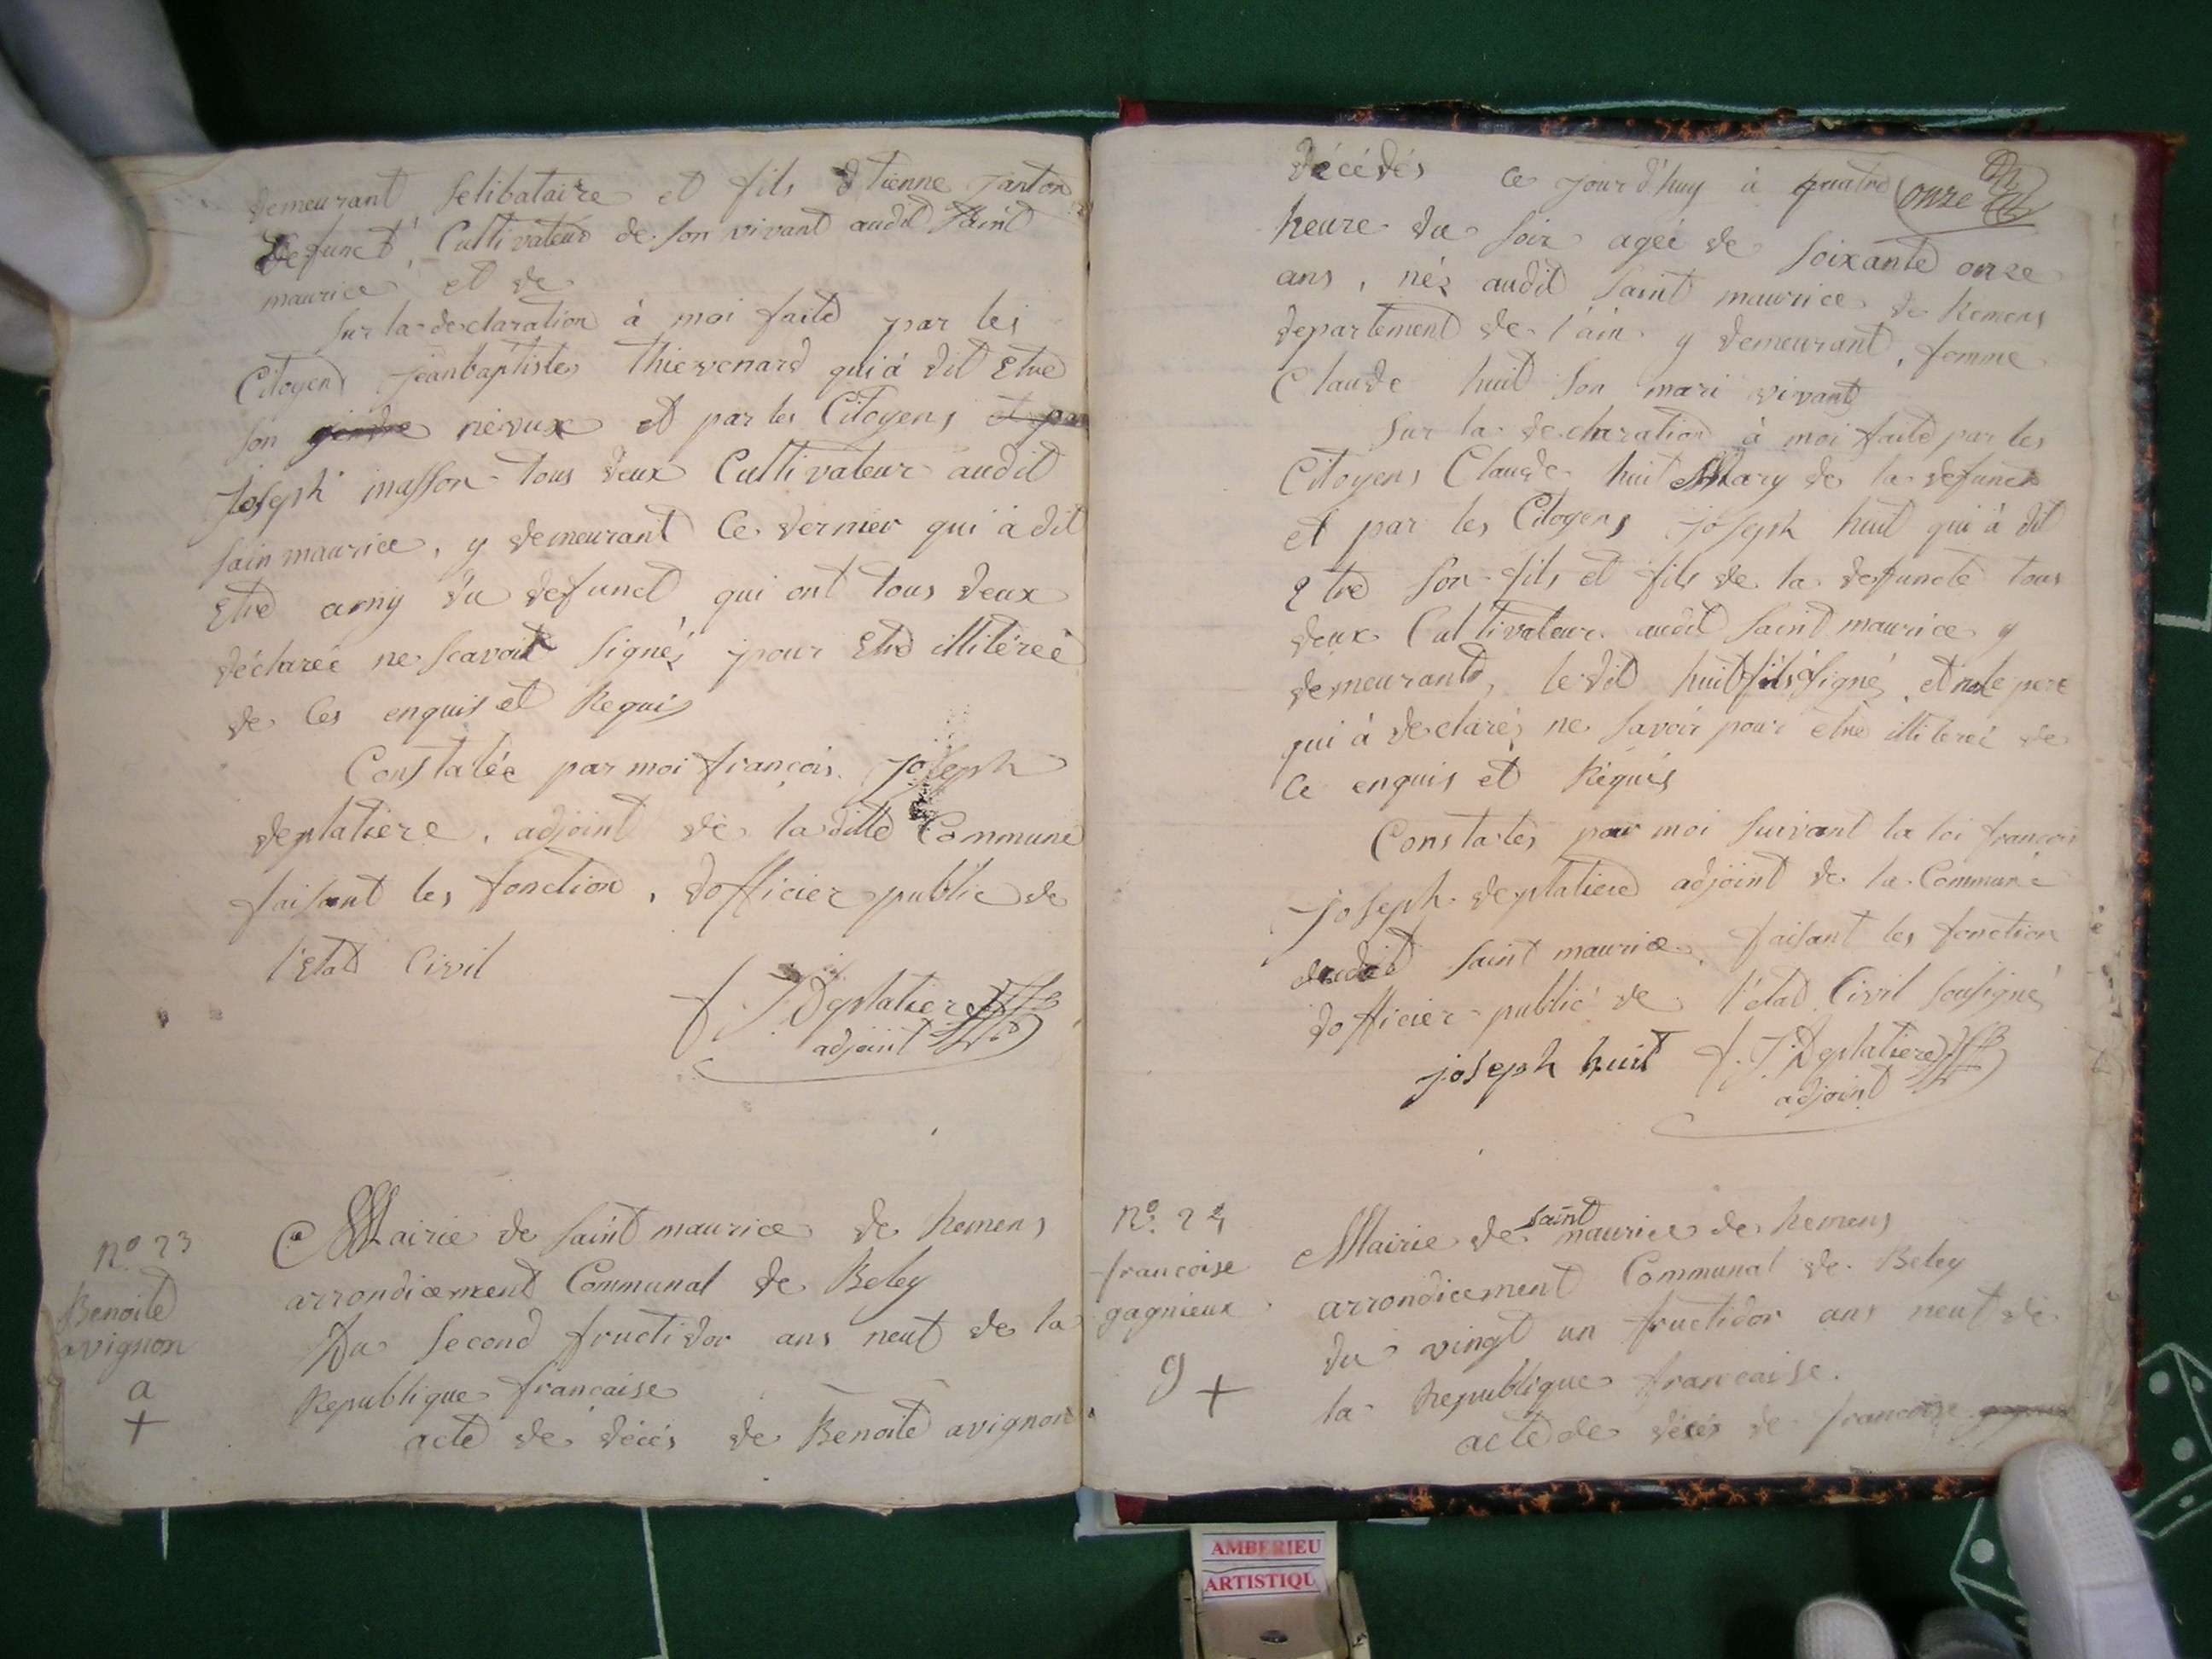 demeurant selibataire et fils Etienne janton
defunct, Cultivateur de son vivant audit Saint
maurice et de
sur la declaration à moi faite par les
Citoyens jeanbaptiste thievenard qui à dit Etre
son neveux et par les Citoyens et par
joseph masson tous deux Cultivateur audit
sain maurice, y demeurant Ce dernier qui à dit
Etre amy du defunct qui ont tous deux
déclarée ne scavoir signéz pour Etre illiterée
de Ces enquis et Requis
Constatée par moi françois joseph
deplatiere, adjoint de la ditte Commune
faisant les fonction, dofficier public de
l'Etat Civil
f. J. Deplatiere
adjoint
N° 23
Benoite
avignon
a
+
Mairie de saint maurice de Remens
arrondicement Communal de Beley
Du second fructidor ans neuf de la
Republique francaise
acte de décés de Benoite avignon
décédés ce jourd'huy à quatre
onze
heure du soir agée de soixante onze
ans, néz audit saint maurice de Remens
departement de l'ain y demeurant, femme
Claude huit son mari vivant
sur la declaration à moi faite par les
Citoyens Claude huit Mary de la defuncte
et par les Citoyens joseph huit qui à dit
Etre son fils et fils de la defuncte tous
deux Cultivateur audit saint maurice y
demeurant, ledit huit fils à signé, et non le pere
qui à declaréz ne savoir pour etre illiterée de
Ce enquis et Réquis
Constatés par moi suivant la loi françois
joseph deplatiere adjoint de la Commune
dudit saint maurice, faisant les fonction
dofficier public de l'etat Civil sousigné
joseph huit f. J. Deplatiere
adjoint
N° 24
francoise
gagnieux
g +
Mairie de saint maurice de Remens
arrondicement Communal de Beley
du vingt un fructidor ans neuf de
la Republique francaise.
acte de décés de francoise
AMBERIEU
ARTISTIQU